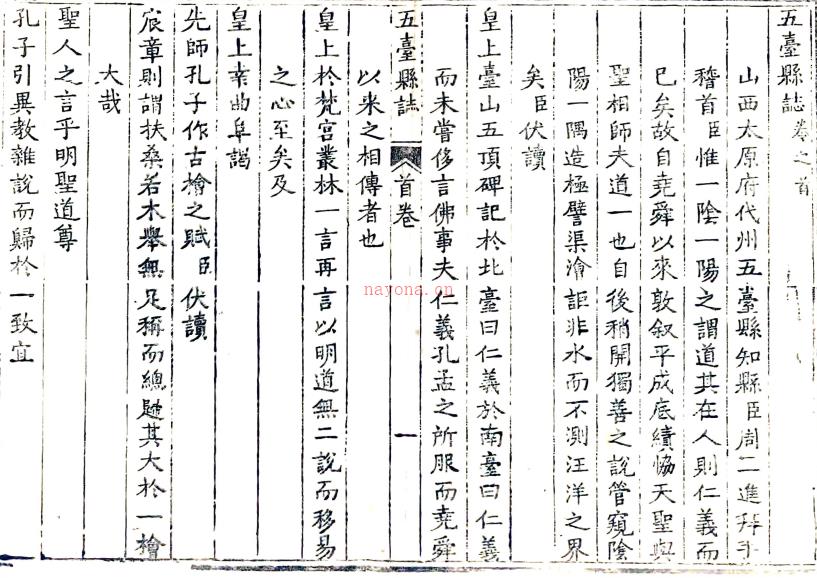 五臺縣誌卷之首
山西太原府代州五臺縣知縣臣周二進拜手
稽首臣惟一陰一陽之謂道其在人則仁義而
已矣故自堯舜以來敦叙平成底績恊天聖與
聖相師夫道一也自後稍開獨善之說管窺陰
陽一隅造極譬渠澮詎非水而不測汪洋之界
矣臣伏讀
皇上臺山五頂碑記於北臺曰仁義於南臺曰仁義
而未嘗侈言佛事夫仁義孔孟之所服而堯舜
五臺縣誌 首卷 一
以來之相傳者也
皇上於梵宮叢林一言再言以明道無二說而移易
之心至矣及
皇上幸曲阜謁
先師孔子作古檜之賦臣伏讀
宸章則謂扶桑若木舉無足稱而總歸其大於一檜
大哉
聖人之言乎明聖道尊
孔子引異教雜說而歸於一致宜
nayona.cn